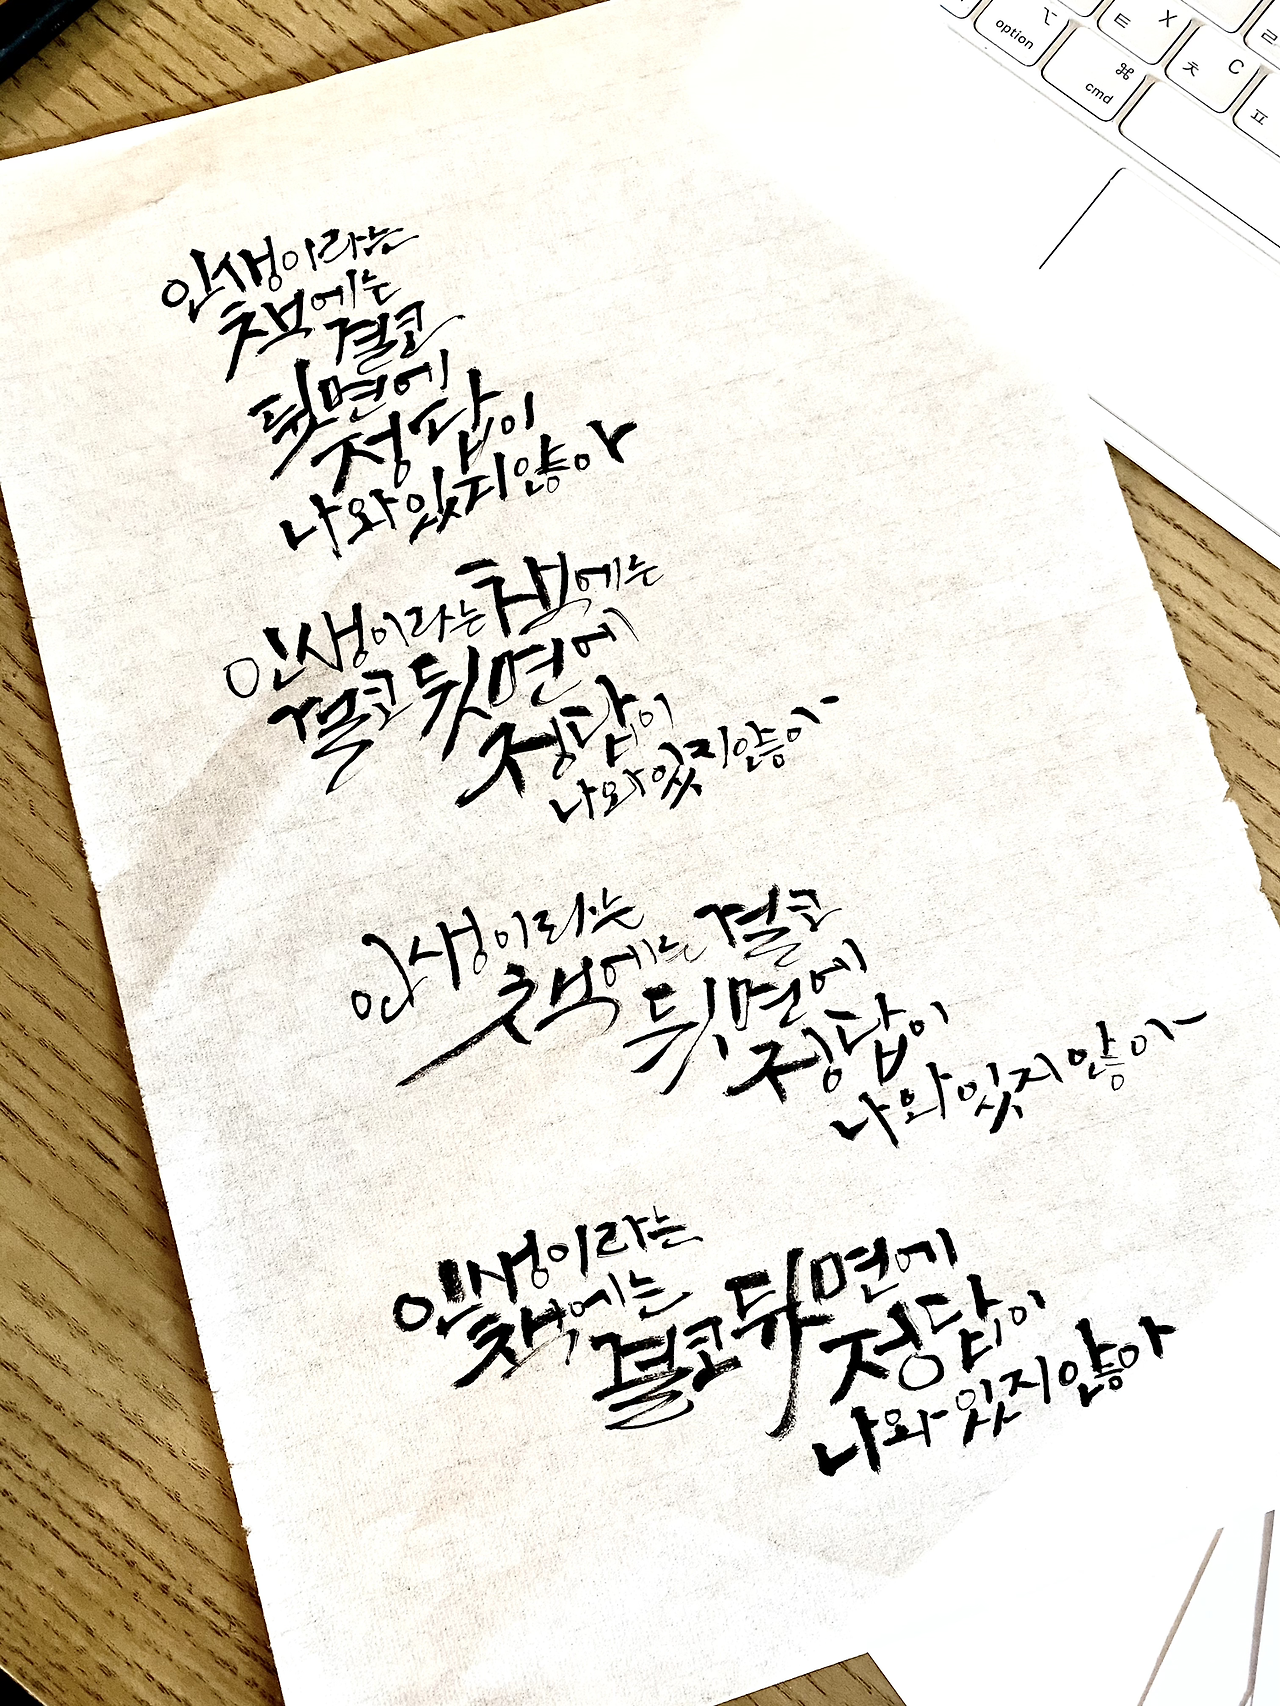 option
⌥
cmd
⌘
ㅌ X
ㅊ C
ㅍ
ㄹ
인생이라는
책에는
결코
뒷면에
정답이
나와있지않아
인생이라는 책에는
결코 뒷면에
정답이
나와있지않아
인생이라는
책에는 결코
뒷면에
정답이
나와있지않아
인생이라는
책에는
결코 뒷면에
정답이
나와있지않아